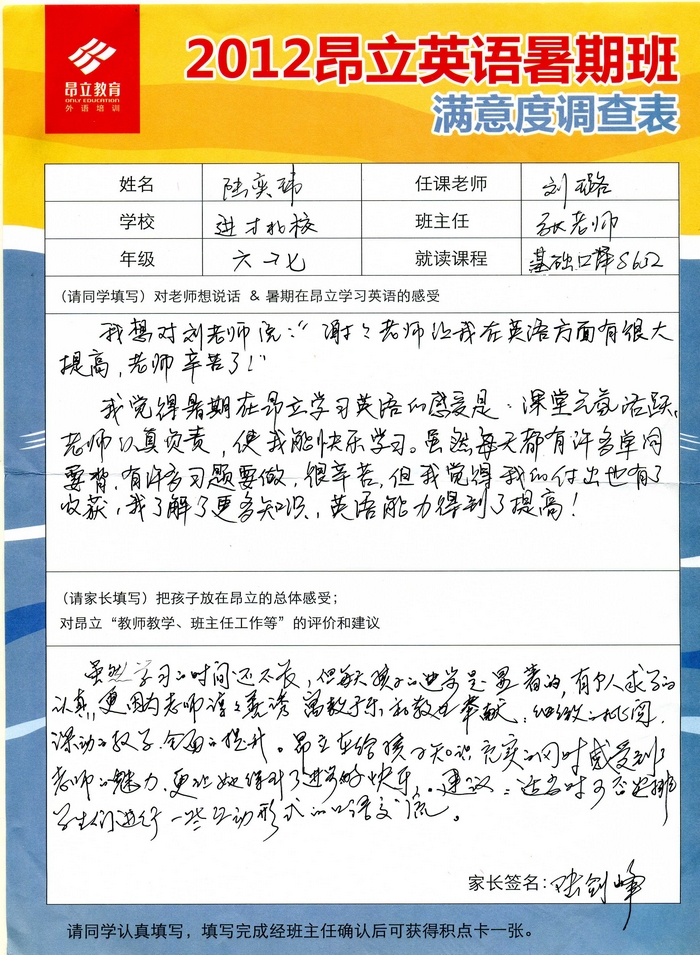 昂立教育
ONLY EDUCATION
外语培训
2012昂立英语暑期班
满意度调查表
姓名 陆奕玮 任课老师 刘璐
学校 进才北校 班主任 张老师
年级 六升七 就读课程 基础口译S652
(请同学填写) 对老师想说话 & 暑期在昂立学习英语的感受
我想对刘老师说:“谢谢老师让我在英语方面有很大
提高,老师辛苦了!”
我觉得暑期在昂立学习英语的感受是:课堂气氛活跃,
老师认真负责,使我能快乐学习。虽然每天都有许多单词
要背,有许多习题要做,很辛苦,但我觉得我的付出也有了
收获,我了解了更多知识,英语能力得到了提高!
(请家长填写) 把孩子放在昂立的总体感受;
对昂立“教师教学、班主任工作等”的评价和建议
虽然学习的时间还不长,但每天孩子的进步是显著的,有个人求学的
认真,更因为老师谆谆善诱 寓教于乐
全面的提升。昂立在给孩子知识充实的同时感受到了
老师的魅力,更让她得到了进步的快乐。建议:适当时可否安排
学生们进行一些互动形式的口语交流。
家长签名:陆剑峰
请同学认真填写,填写完成经班主任确认后可获得积点卡一张。